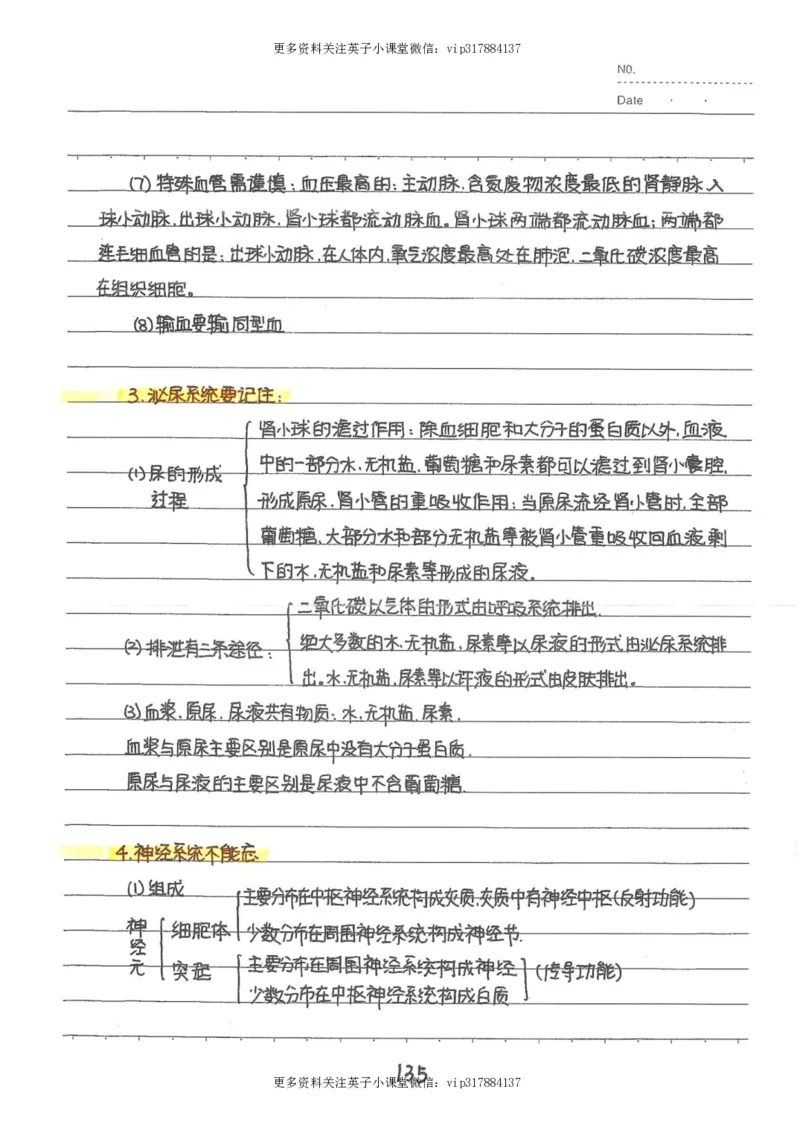 更多资料关注英子小课堂微信：vip317884137
NO.
Date
(7) 特殊血管需谨慎：血压最高的：主动脉.含氮废物浓度最低的肾静脉.入
球小动脉.出球小动脉.肾小球都流动脉血。肾小球两端都流动脉血；两端都
连毛细血管的是：出球小动脉,在人体内,氧气浓度最高处在肺泡.二氧化碳浓度最高
在组织细胞。
(8)输血要输同型血
3.泌尿系统要记住：
肾小球的滤过作用：除血细胞和大分子的蛋白质以外,血液
(1)尿的形成 中的一部分水.无机盐.葡萄糖和尿素都可以滤过到肾小囊腔,
过程 形成原尿.肾小管的重吸收作用：当原尿流经肾小管时,全部
葡萄糖、大部分水和部分无机盐等被肾小管重吸收回血液,剩
下的水.无机盐和尿素等形成的尿液.
二氧化碳以气体的形式由呼吸系统排出.
(2)排泄有三条途径： 绝大多数的水.无机盐.尿素等以尿液的形式由泌尿系统排
出。水.无机盐.尿素等以汗液的形式由皮肤排出。
(3)血浆.原尿.尿液共有物质：水.无机盐.尿素.
血浆与原尿主要区别是原尿中没有大分子蛋白质.
原尿与尿液的主要区别是尿液中不含葡萄糖.
4.神经系统不能忘
(1)组成 主要分布在中枢神经系统构成灰质,灰质中有神经中枢(反射功能)
神经元 细胞体 少数分布在周围神经系统构成神经节.
突起 主要分布在周围神经系统构成神经 (传导功能)
少数分布在中枢神经系统构成白质
135
更多资料关注英子小课堂微信：vip317884137